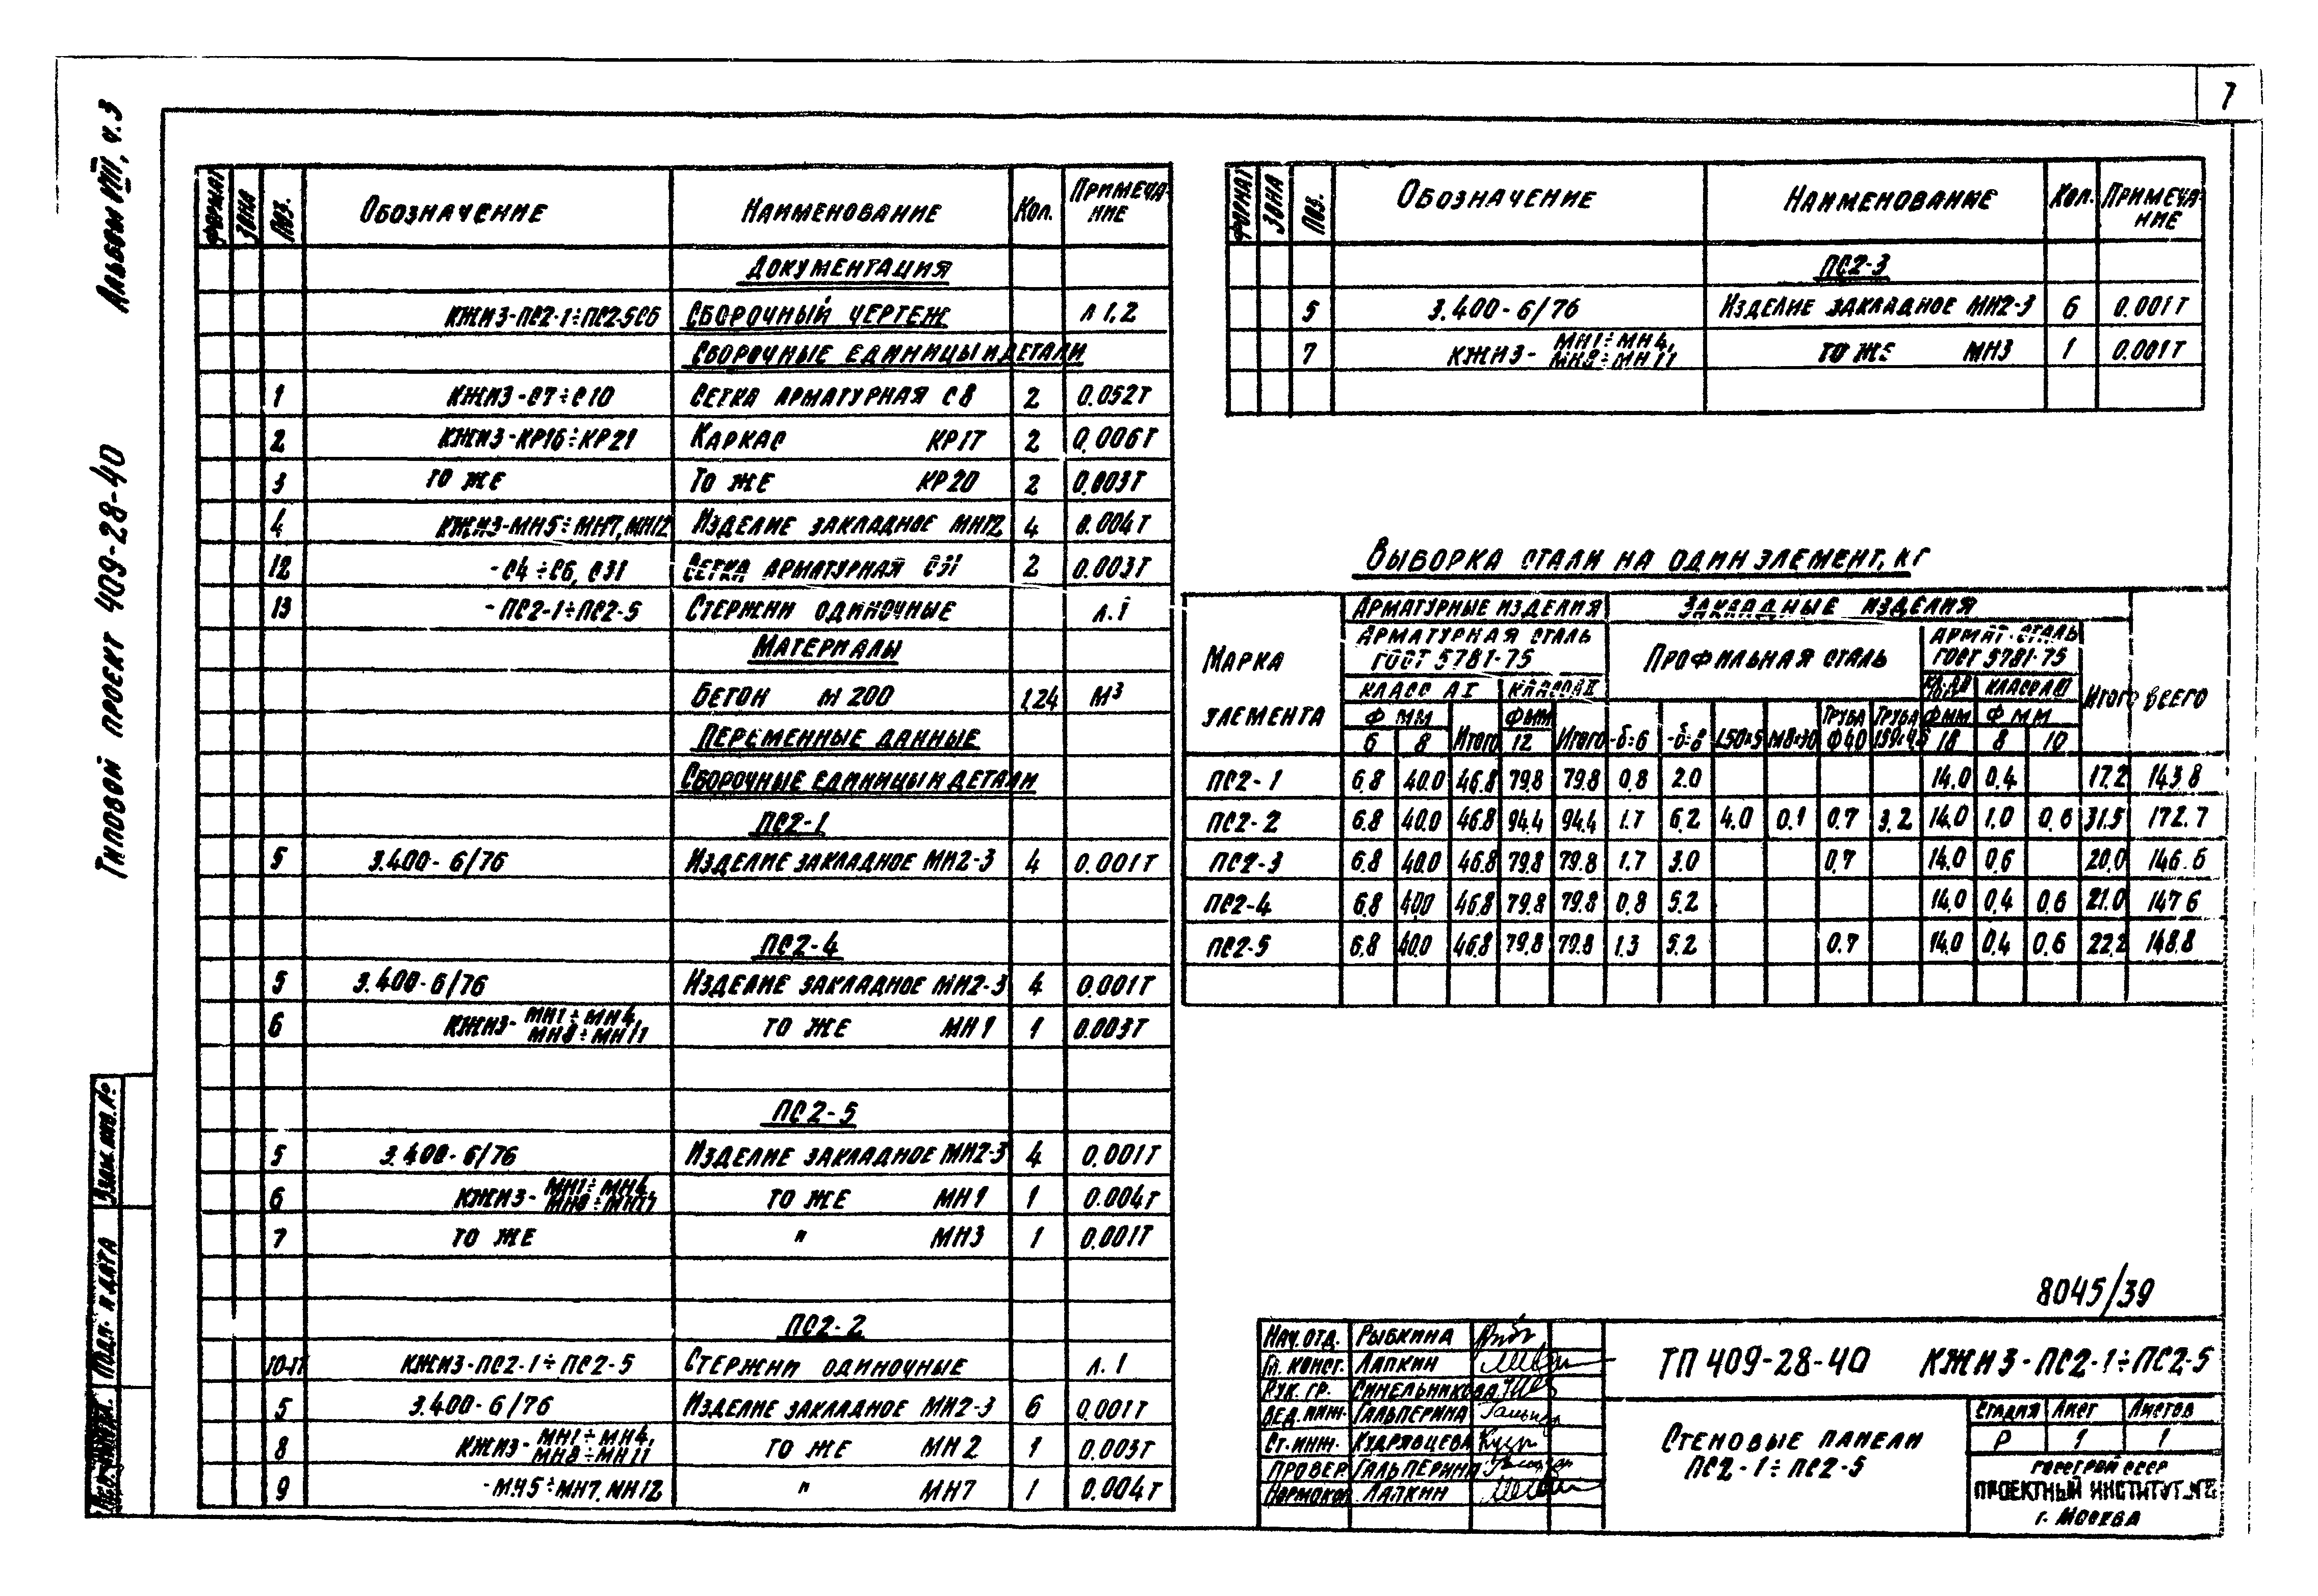 7
Альбом VIII, ч.3
Типовой проект 409-28-40
Формат Зона Поз. Обозначение Наименование Кол. Примечание
Документация
КЖИ3-ПС2-1÷ПС2-5СБ Сборочный чертеж л 1,2
Сборочные единицы и детали
1 КЖИ3-С7÷С10 Сетка арматурная С8 2 0.052т
2 КЖИ3-КР16÷КР21 Каркас КР17 2 0.006т
3 то же То же КР20 2 0.003т
4 КЖИ3-МН5÷МН7, МН12 Изделие закладное МН12 4 0.004т
12 -С4÷С6, С31 Сетка арматурная С31 2 0.003т
13 -ПС2-1÷ПС2-5 Стержни одиночные л.1
Материалы
Бетон М 200 1,24 М³
Переменные данные
Сборочные единицы и детали
ПС2-1
5 3.400-6/76 Изделие закладное МН2-3 4 0.001т
ПС2-4
5 3.400-6/76 Изделие закладное МН2-3 4 0.001т
6 КЖИ3- МН1÷МН4, МН8÷МН11 то же МН1 1 0.003т
ПС2-5
5 3.400-6/76 Изделие закладное МН2-3 4 0.001т
6 КЖИ3- МН1÷МН4, МН8÷МН11 то же МН1 1 0.004т
7 то же " МН3 1 0.001т
ПС2-2
10-11 КЖИ3-ПС2-1÷ПС2-5 Стержни одиночные л.1
5 3.400-6/76 Изделие закладное МН2-3 6 0.001т
8 КЖИ3- МН1÷МН4, МН8÷МН11 то же МН2 1 0.003т
9 -МН5÷МН7, МН12 " МН7 1 0.004т
Формат Зона Поз. Обозначение Наименование Кол. Примечание
ПС2-3
5 3.400-6/76 Изделие закладное МН2-3 6 0.001т
7 КЖИ3- МН1÷МН4, МН8÷МН11 то же МН3 1 0.001т
Выборка стали на один элемент, кг
Марка элемента
Арматурные изделия Закладные изделия
Арматурная сталь ГОСТ 5781-75 Профильная сталь Армат. сталь ГОСТ 5781-75 Итого Всего
Класс АI Класс АII Класс АIII
Ф мм Ф мм Труба Труба Ф мм Ф мм
6 8 Итого 12 Итого -δ=6 -δ=8 L50×5 М8×30 Ф40 159×4,5 18 8 10
ПС2-1 6.8 40.0 46.8 79.8 79.8 0.8 2.0 14.0 0.4 17.2 143.8
ПС2-2 6.8 40.0 46.8 94.4 94.4 1.7 6.2 4.0 0.1 0.7 3.2 14.0 1.0 0.6 31.5 172.7
ПС2-3 6.8 40.0 46.8 79.8 79.8 1.7 3.0 0.7 14.0 0.6 20.0 146.6
ПС2-4 6.8 40.0 46.8 79.8 79.8 0.8 5.2 14.0 0.4 0.6 21.0 147.6
ПС2-5 6.8 40.0 46.8 79.8 79.8 1.3 5.2 0.7 14.0 0.4 0.6 22.2 148.8
8045/39
Нач. отд. Рыбкина
Гл. конст. Лапкин
Рук. гр. Синельникова
Вед. инж. Гальперина
Ст. инж. Кудрявцева
Провер. Гальперина
Нормокон. Лапкин
ТП 409-28-40 КЖИ3-ПС2-1÷ПС2-5
Стеновые панели
ПС2-1÷ПС2-5
Стадия Лист Листов
Р 1 1
Госстрой СССР
Проектный институт №2
г. Москва
Взам. инв. №
Подп. и дата